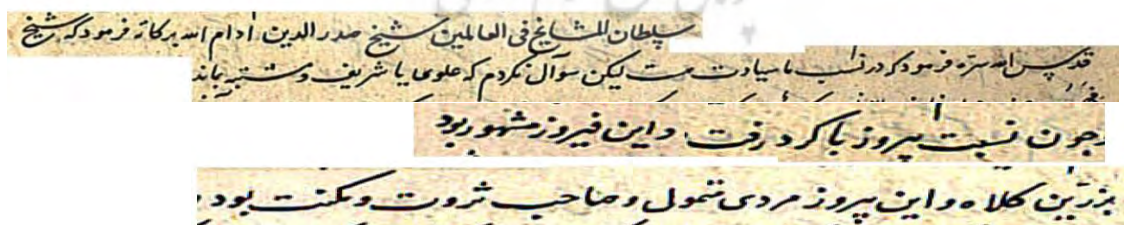 سلطان المشایخ فی العالمین شیخ صدر الدین ادام الله برکاته فرمود که شیخ
قدس الله سره فرمود که در نسب ما سیادت هست لیکن سوال نکردم که علوی یا شریف و مشتبه بماند
چون نسبت پیروز با کرد رفت. و این فیروز مشهور بود
بزرین کلاه و این پیروز مردی متمول و صاحب ثروت و مکنت بود